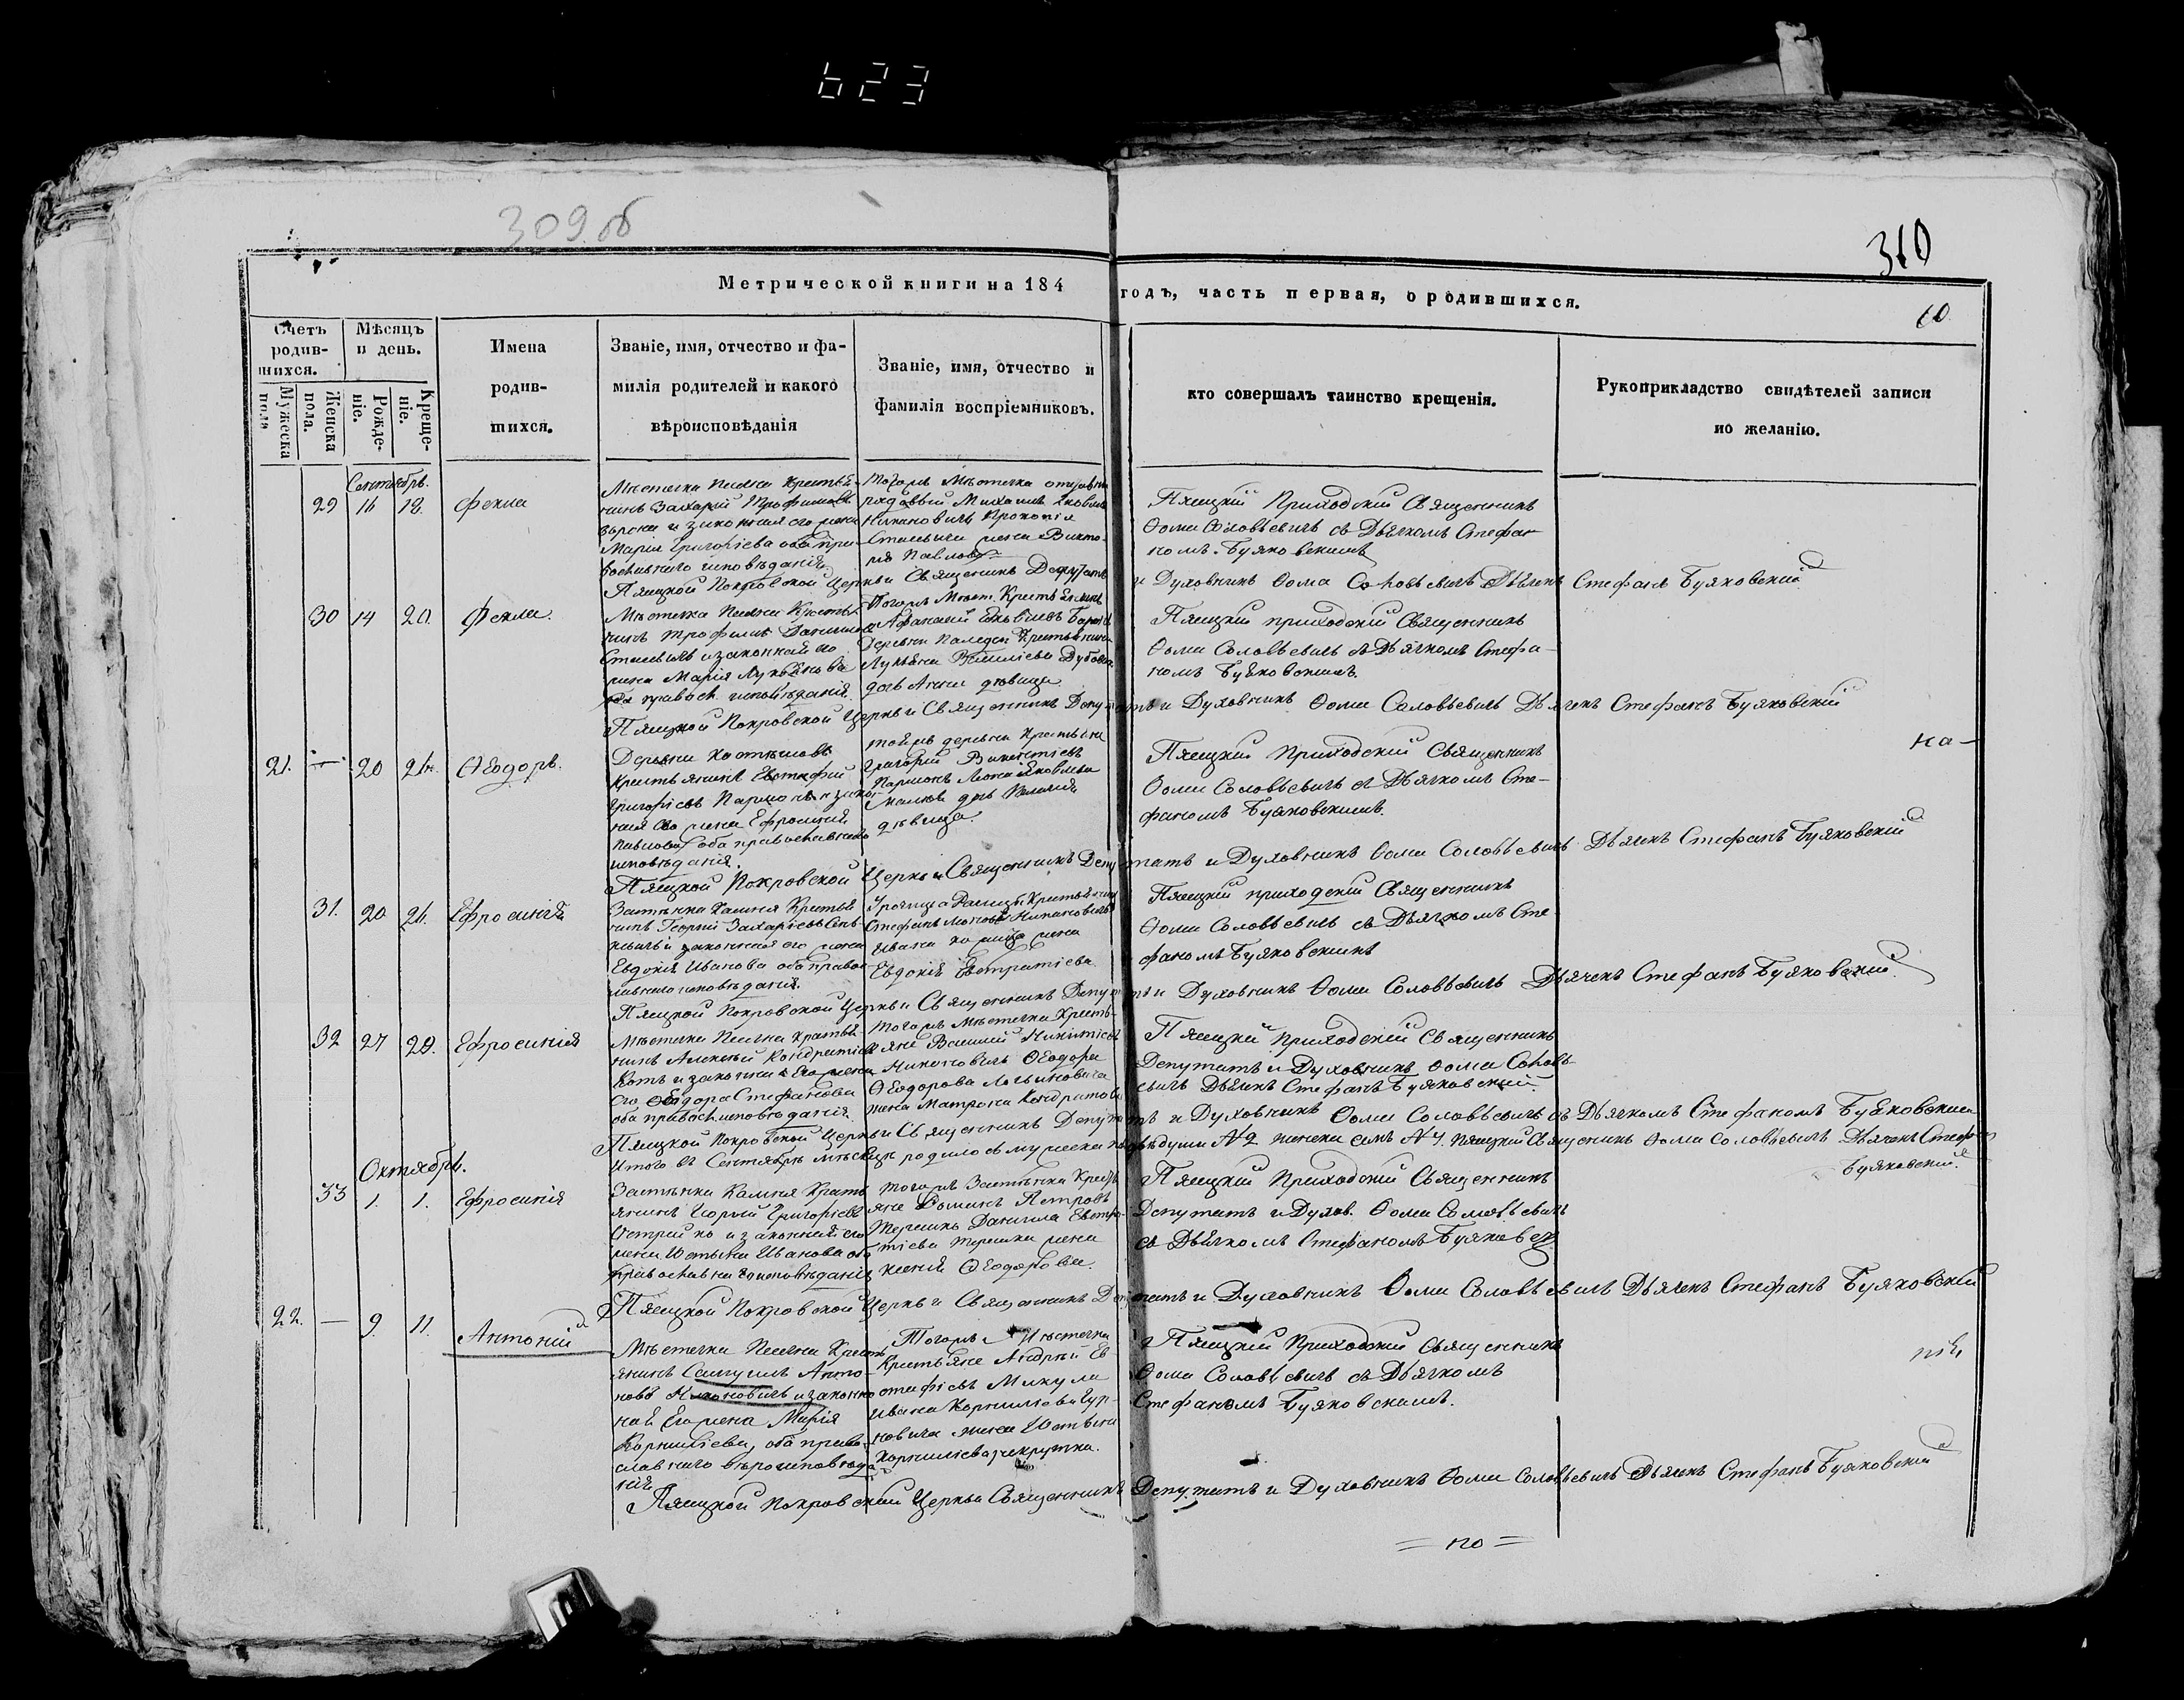 623
309 об
310
Метрической книги на 184 годъ, часть первая, о родившихся.
10
Счетъ родив-
шихся.
Мѣсяцъ
и день.
Мужеска
пола
Женска
пола.
Рожде-
ніе.
Креще-
ніе.
Имена
родив-
шихся.
Званіе, имя, отчество и фа-
милія родителей и какого
вѣроисповѣданія
Званіе, имя, отчество и
фамилія воспріемниковъ.
кто совершалъ таинство крещенія.
Рукоприкладство свидѣтелей записи
по желанію.
Сентябрь.
29 16 18. Фекла
Мѣстечка Песчки Крестья-
нинъ Захарій Трофимовъ
и законная его жена
Марія Григоріева оба пра-
вославнаго исповѣданія
Тогожъ Мѣстечка
рядовый Михаилъ
Никоновичъ Прокопія
жена Викто-
рія Павлова
Пяцкій Приходскій Священникъ
Ѳома Соловьевичъ съ Дьячкомъ Стефа-
номъ Буяковскимъ
Пяцкой Покровской Церкви Священникъ Депутатъ и Духовникъ Ѳома Соловьевичъ Дьячекъ Стефанъ Буяковскій
30 14 20. Фекла.
Мѣстечка Песчки Кресть-
нинъ Трофимъ Данилов
и законная его
жена Марія Лукьянова
оба правосл. исповѣданія.
Тогожъ Мѣст. Крестьянинъ
Афанасій
Деревни Крестьянина
Лукьяна Василіева
дочь Анна дѣвица
Пяцкій приходскій Священникъ
Ѳома Соловьевичъ съ Дьячкомъ Стефа-
номъ Буяковскимъ.
Пяцкой Покровской Церкви Священникъ Депутатъ и Духовникъ Ѳома Соловьевичъ Дьячекъ Стефанъ Буяковскій
21. — 20 24. Ѳеодоръ.
Деревни
Крестьянинъ Евстафій
Григоріевъ и зако-
ная его жена Ефросинія
Павлова оба православнаго
исповѣданія.
тойжъ деревни Крестьяне
Григорій Викентіевъ
Яковлева
дочь
дѣвица.
Пяцкій Приходскій Священникъ
Ѳома Соловьевичъ съ Дьячкомъ Сте-
фаномъ Буяковскимъ.
на-
Пяцкой Покровской Церкви Священникъ Депутатъ и Духовникъ Ѳома Соловьевичъ Дьячекъ Стефанъ Буяковскій
31. 20 21. Ефросинія
Застѣнка Камня Крестья-
нинъ Георгій Захаріевъ
и законная его жена
Евдокія Иванова оба право-
славнаго исповѣданія.
Урочища Крестьянинъ
Стефанъ Никоновичъ
Ивана жена
Евдокія Евстратіева.
Пяцкій приходскій Священникъ
Ѳома Соловьевичъ съ Дьячкомъ Сте-
фаномъ Буяковскимъ
Пяцкой Покровской Церкви Священникъ Депутатъ и Духовникъ Ѳома Соловьевичъ Дьячекъ Стефанъ Буяковскій.
32 27 29. Ефросинія
Мѣстечка Песчки Крестья-
нинъ Алексѣй Кондратіевъ
Котъ и законная жена
его Ѳеодора Стефанова
оба правосл. исповѣданія.
тогожъ Мѣстечка Кресть-
яне Василій Никитіевъ
Никоновичъ Ѳеодора
Ѳеодорова
жена Матрона Кондратова
Пяцкій Приходскій Священникъ
Депутатъ и Духовникъ Ѳома Соловь-
евичъ Дьячекъ Стефанъ Буяковскій.
Пяцкой Покровской Церкви Священникъ Депутатъ и Духовникъ Ѳома Соловьевичъ съ Дьячкомъ Стефаномъ Буяковским
Итого въ Сентябрѣ мѣсяцѣ родилось мужеска пола двѣ души №2 женска семь №7. Пяцкій Священникъ Ѳома Соловьевичъ Дьячекъ Стефан
Буяковскій.
Октябрь.
33 1. 1. Ефросинія
Застѣнка Камня Кресть-
янинъ Георгій Григоріевъ
Острийко и законная его
жена Юстына Иванова оба
православнаго исповѣданія
тогожъ Застѣнка Кресть-
яне Фоминъ Петровъ
Терешко Данила Евстра-
тіева Терешки жена
Ксенія Ѳеодорова.
Пяцкій Приходскій Священникъ
Депутатъ и Духов. Ѳома Соловьевичъ
съ Дьячкомъ Стефаномъ Буяковск.
Пяцкой Покровской Церкви Священникъ Депутатъ и Духовникъ Ѳома Соловьевичъ Дьячекъ Стефанъ Буяковскій
22. — 9. 11. Антоній
Мѣстечка Песчки Кресть-
янинъ Самуилъ Анто-
новъ Никоновичъ и закон-
ная Его жена Марія
Корниліева, оба право-
славнаго вѣроисповѣда-
нія
Тогожъ Мѣстечка
Крестьяне Андрей Ев-
стафіевъ Микула
Ивана Корнилова Гур-
новича жена Юстына
Корниліева рекрутка.
Пяцкій Приходскій Священникъ
Ѳома Соловьевичъ съ Дьячкомъ
Стефаномъ Буяковскимъ.
Пяцкой Покровской Церкви Священникъ Депутатъ и Духовникъ Ѳома Соловьевичъ Дьячекъ Стефанъ Буяковскій
= по =